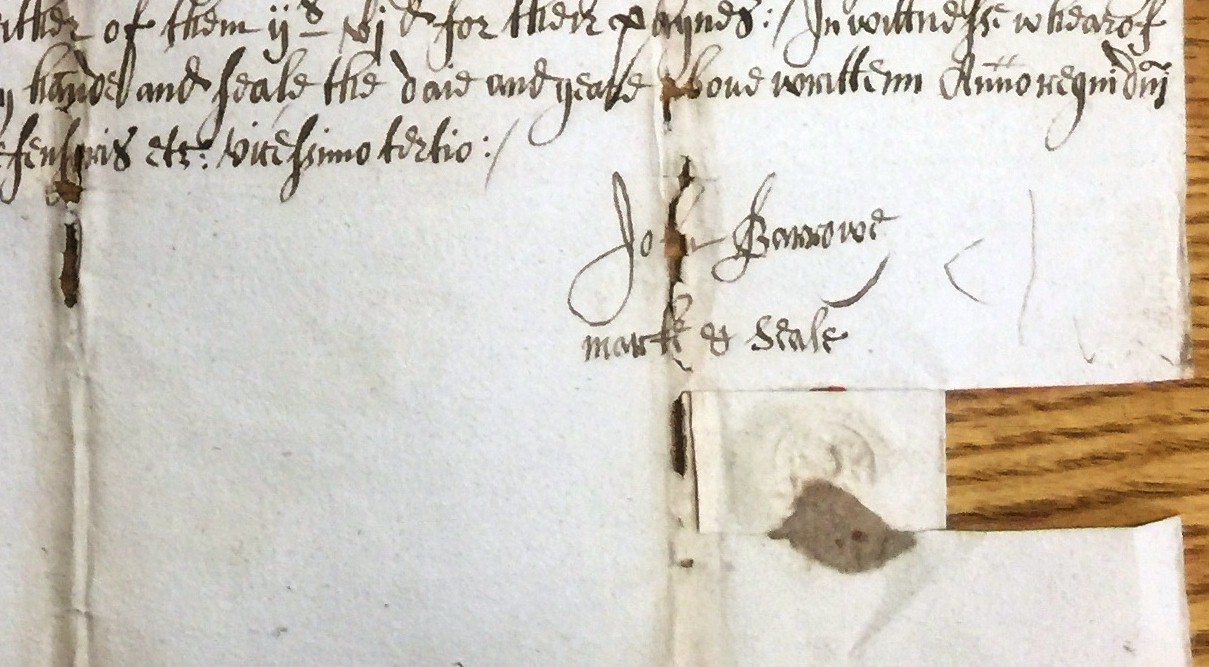 ither of them ijs vjd for their paynes :/ In wittnesse whearof
hande and seale the daie and yeare above writtenn Anno regni dni
efensoris etc: vicessimo tertio :/
John Barrowe
marke & Seale